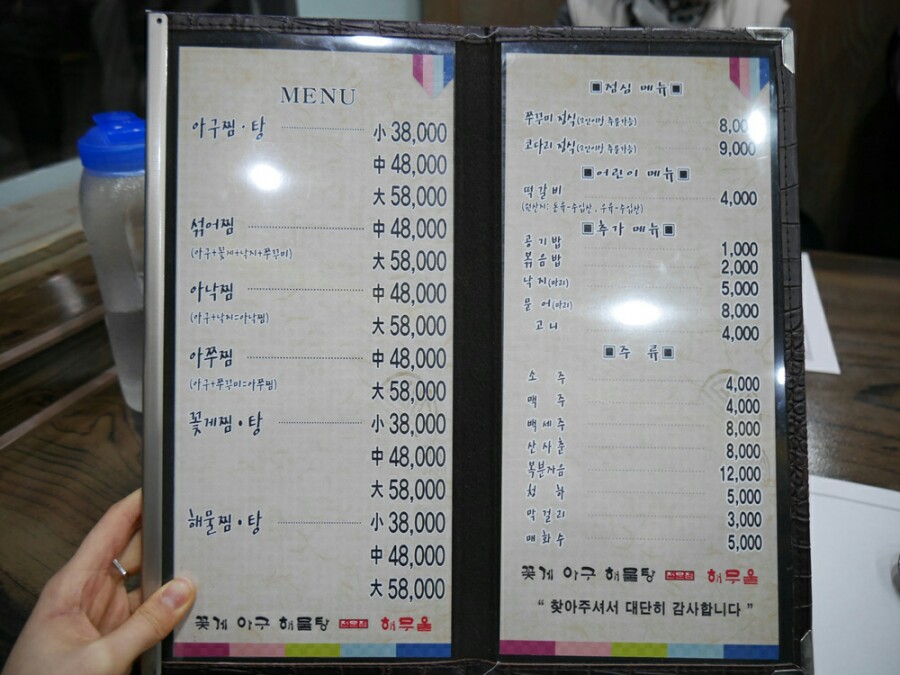 MENU
아구찜·탕 小 38,000
中 48,000
大 58,000
섞어찜 中 48,000
(아구+꽃게+낙지+쭈꾸미) 大 58,000
아낙찜 中 48,000
(아구+낙지=아낙찜) 大 58,000
아쭈찜 中 48,000
(아구+쭈꾸미=아쭈찜) 大 58,000
꽃게찜·탕 小 38,000
中 48,000
大 58,000
해물찜·탕 小 38,000
中 48,000
大 58,000
꽃게 아구 해물탕 전문점 해무울
▣점심 메뉴▣
쭈꾸미 정식(2인이상 주문가능) 8,000
코다리 정식(2인이상 주문가능) 9,000
▣어린이 메뉴▣
떡갈비 4,000
(원산지: 돈육-수입산, 우육-수입산)
▣추가 메뉴▣
공기밥 1,000
볶음밥 2,000
낙지(마리) 5,000
문어(마리) 8,000
고니 4,000
▣주 류▣
소 주 4,000
맥 주 4,000
백세주 8,000
산사춘 8,000
복분자음 12,000
청 하 5,000
막걸리 3,000
매화수 5,000
꽃게 아구 해물탕 전문점 해무울
“ 찾아주셔서 대단히 감사합니다 ”